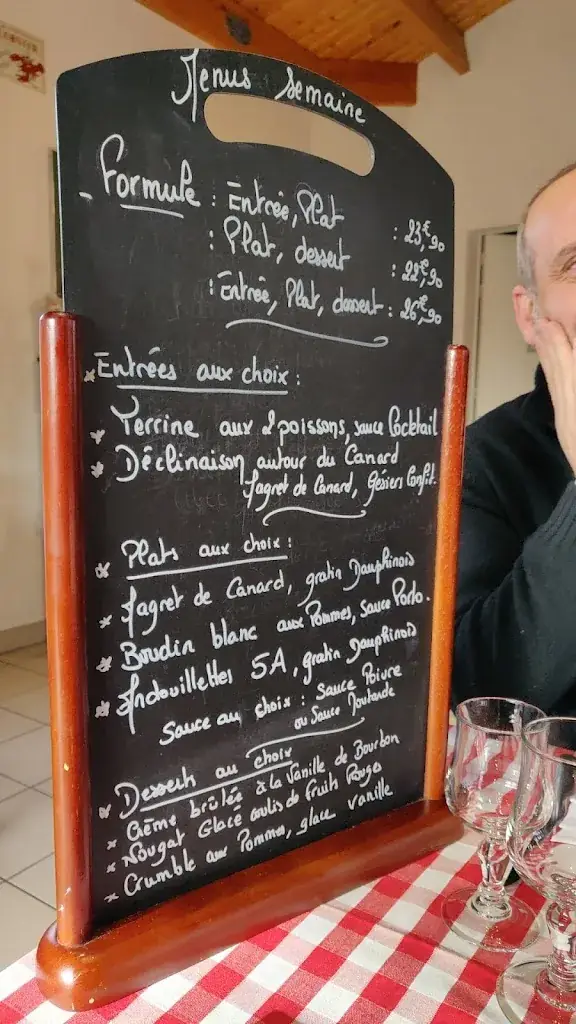 Menus Semaine
- Formule : Entrée, Plat : 23,€90
: Plat, dessert : 22,€90
: Entrée, Plat, dessert : 26,€90
* Entrées aux choix :
* Terrine aux 2 poissons, sauce Cocktail
* Déclinaison autour du Canard
Magret de Canard, Gésiers Confit.
* Plats aux choix :
* Magret de Canard, gratin Dauphinois
* Boudin blanc aux Pommes, sauce Porto.
* Andouillettes 5A, gratin Dauphinois
Sauce au choix : Sauce Poivre
ou Sauce Moutarde
* Desserts au choix
* Crème brûlée à la Vanille de Bourbon
* Nougat Glacé coulis de Fruits Rouges
* Crumble aux Pommes, glace vanille